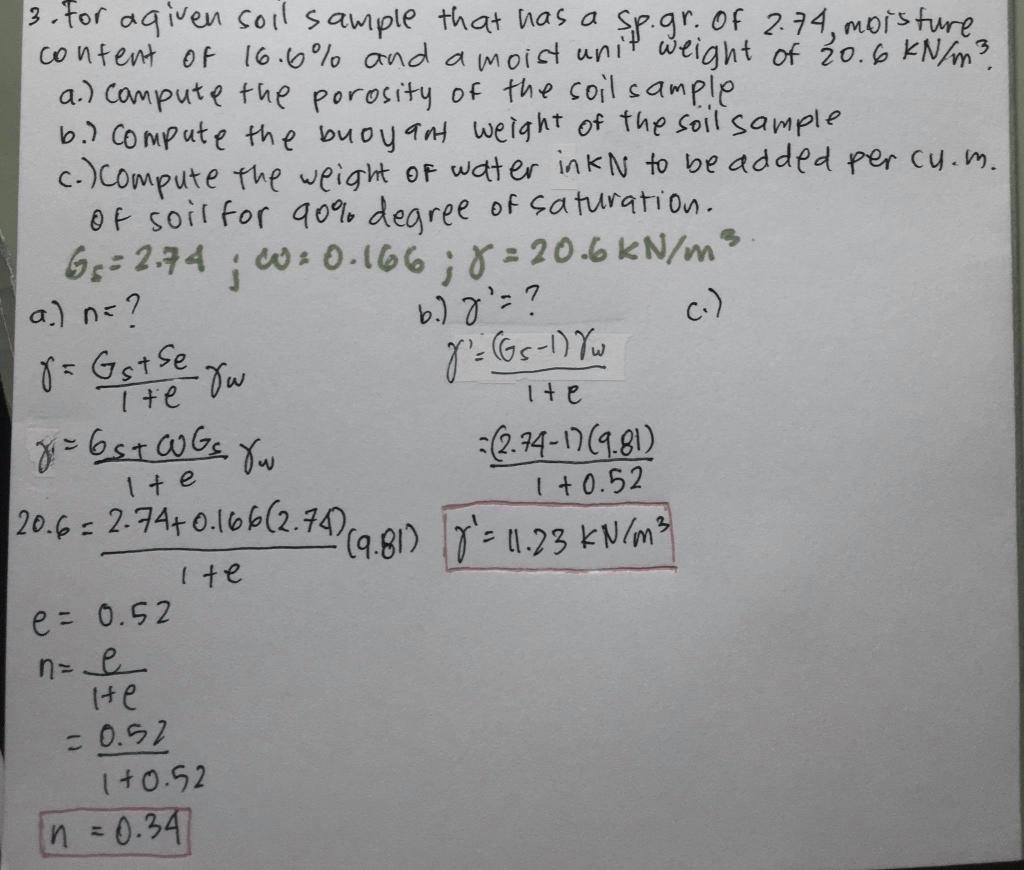 3. For a given soil sample that has a sp.gr. of 2.74, moisture
content of 16.6% and a moist unit weight of 20.6 KN/m³.
a.) Compute the porosity of the soil sample
b.) Compute the buoyant weight of the soil sample
c.) Compute the weight of water in KN to be added per cu.m.
of soil for 90% degree of saturation.
Gs = 2.74 ; ω = 0.166 ; γ = 20.6 KN/m³
a.) n = ?
γ = Gs + Se / 1 + e γw
γ = Gs + ωGs / 1 + e γw
20.6 = 2.74 + 0.166(2.74) / 1 + e (9.81)
e = 0.52
n = e / 1 + e
= 0.52 / 1 + 0.52
n = 0.34
b.) γ' = ?
γ' = (Gs - 1) γw / 1 + e
= (2.74 - 1)(9.81) / 1 + 0.52
γ' = 11.23 KN/m³
c.)